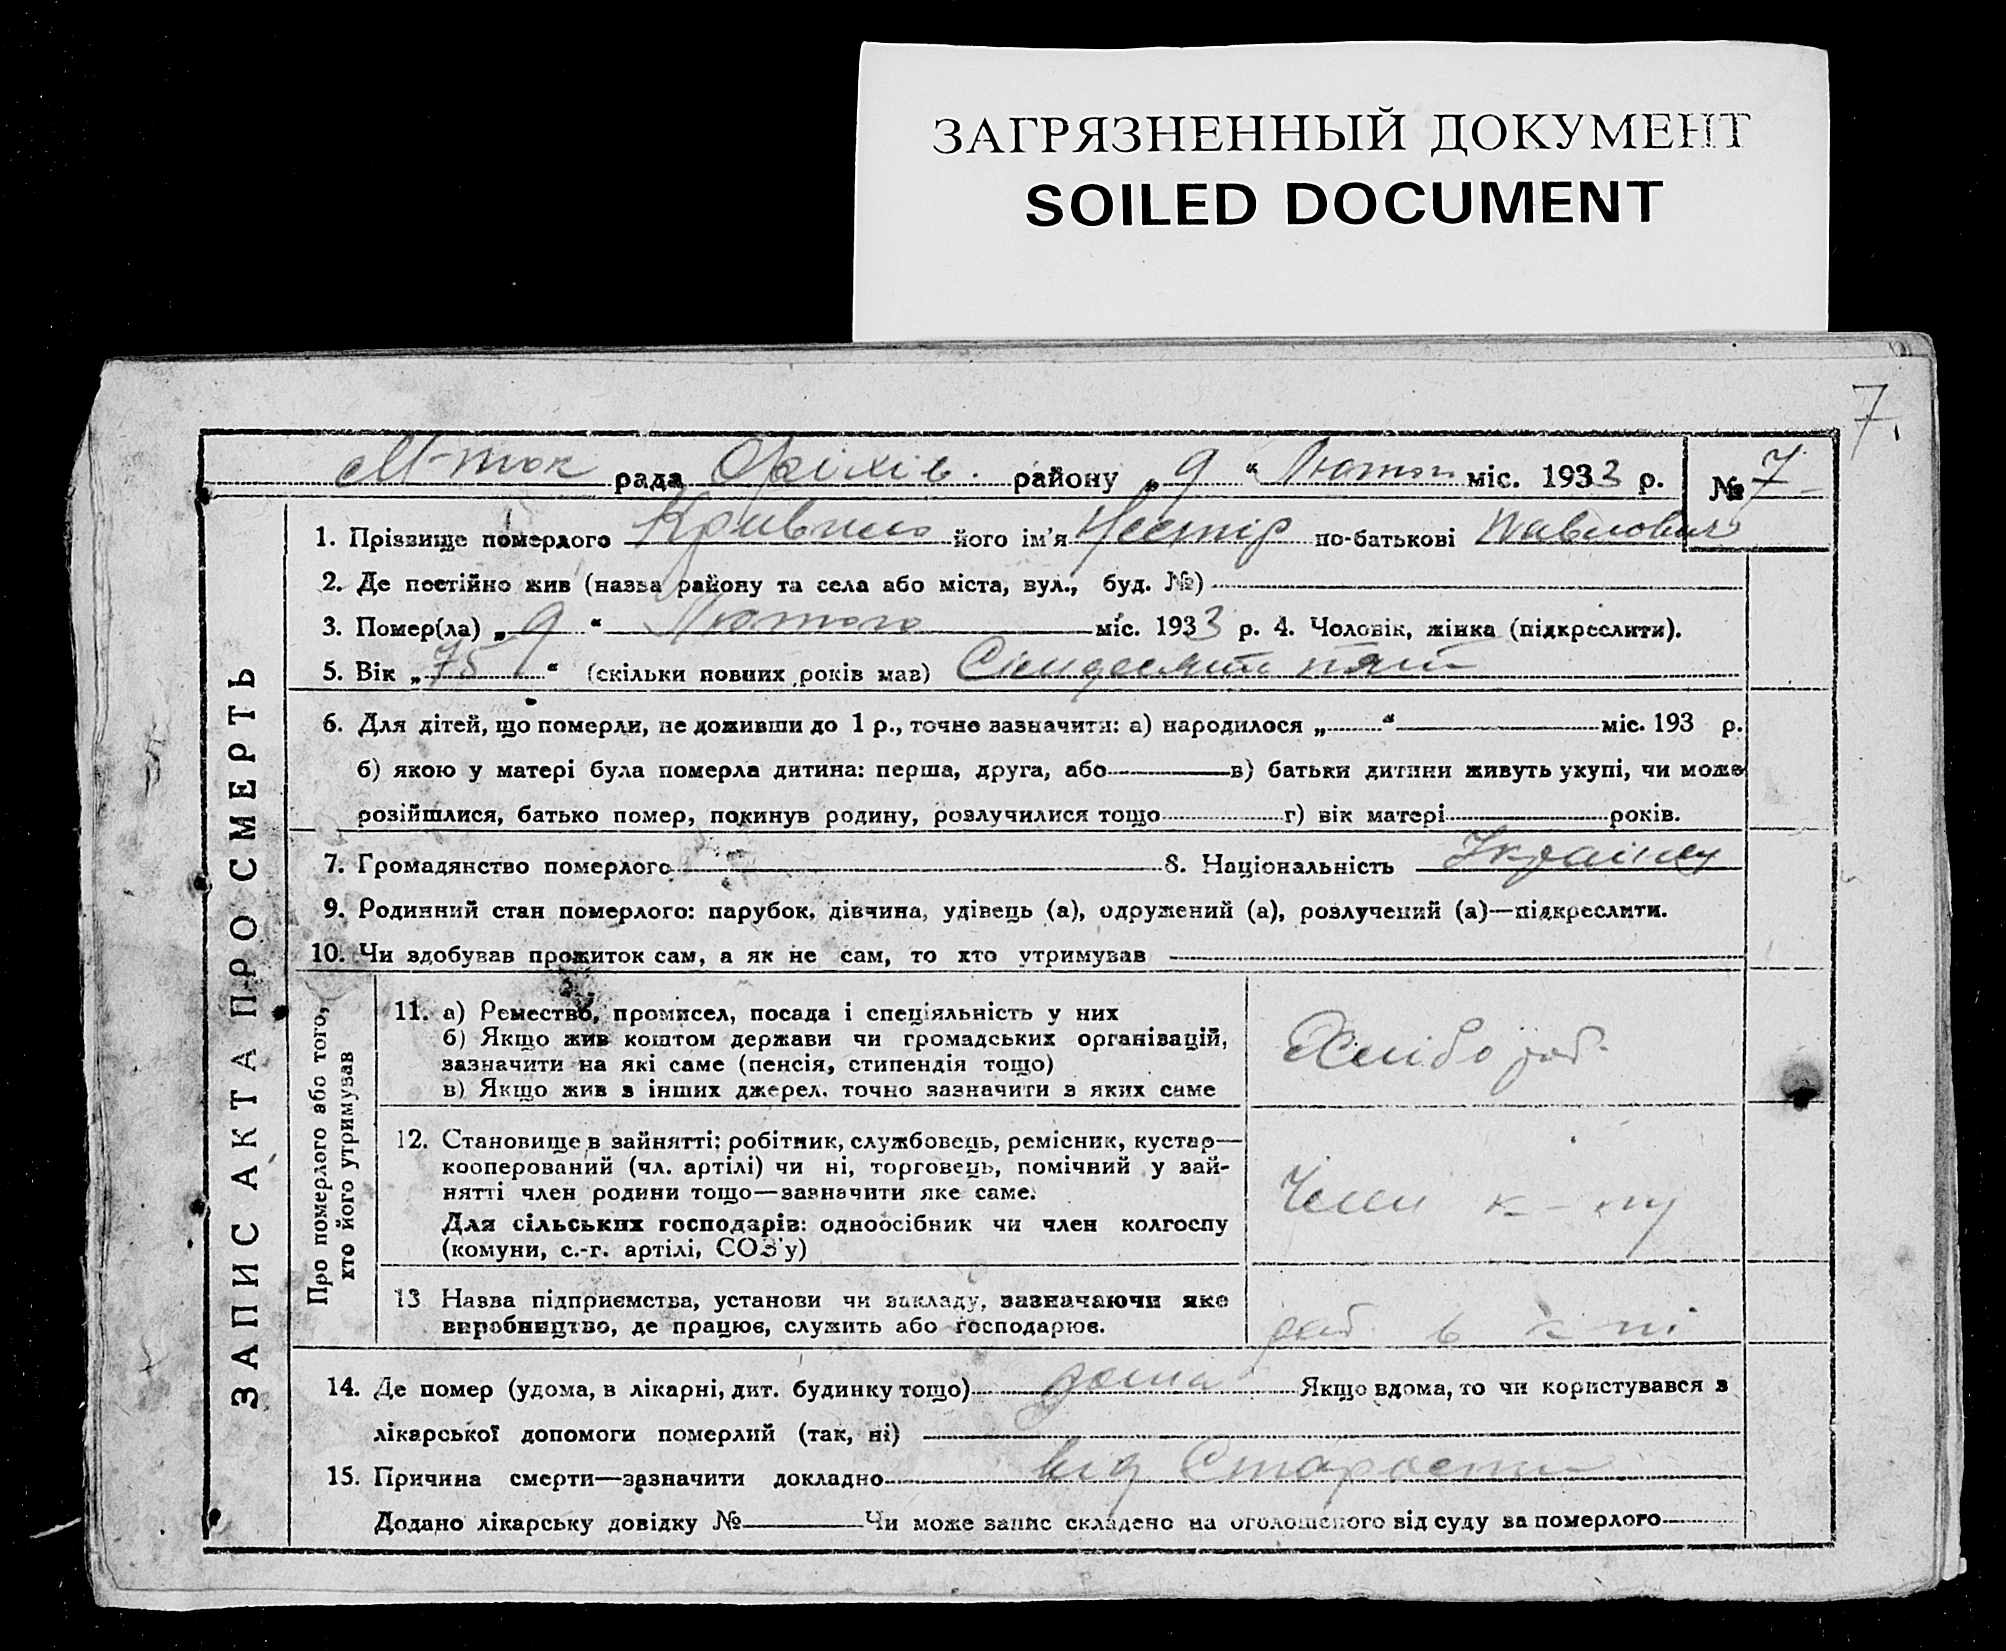 ЗАГРЯЗНЕННЫЙ ДОКУМЕНТ
SOILED DOCUMENT
7.
М-ток рада Оріхів. району „9“ Лютого міс. 1933 р. № 7
1. Прізвище померлого його ім'я Нестір по-батькові Павлович
2. Де постійно жив (назва району та села або міста, вул., буд. №)
3. Помер(ла) „9“ Лютого міс. 1933 р. 4. Чоловік, жінка (підкреслити).
5. Вік „75“ (скільки повних років мав) Сімдесят пять
6. Для дітей, що померли, не доживши до 1 р., точно зазначити: а) народилося „ “ міс. 193 р.
б) якою у матері була померла дитина: перша, друга, або в) батьки дитини живуть укупі, чи може
розійшлися, батько помер, покинув родину, розлучилися тощо г) вік матері років.
7. Громадянство померлого 8. Національність Українец
9. Родинний стан померлого: парубок, дівчина, удівець (а), одружений (а), розлучений (а)—підкреслити.
10. Чи здобував прожиток сам, а як не сам, то хто утримував
ЗАПИС АКТА ПРО СМЕРТЬ
Про померлого або того,
хто його утримував
11. а) Ремество, промисел, посада і спеціяльність у них
б) Якщо жив коштом держави чи громадських організацій,
зазначити на які саме (пенсія, стипендія тощо)
в) Якщо жив з інших джерел, точно зазначити з яких саме
Хлібороб.
12. Становище в зайнятті: робітник, службовець, ремісник, кустар—
кооперований (чл. артілі) чи ні, торговець, помічний у зай-
нятті член родини тощо—зазначити яке саме.
Для сільських господарів: одноосібник чи член колгоспу
(комуни, с.-г. артілі, СОЗ'у)
Член к-пу
13 Назва підприємства, установи чи закладу, зазначаючи яке
виробництво, де працює, служить або господарює.
роб в к пі
14. Де помер (удома, в лікарні, дит. будинку тощо) дома Якщо вдома, то чи користувався з
лікарської допомоги померлий (так, ні)
15. Причина смерти—зазначити докладно від Старости
Додано лікарську довідку № Чи може запис складено на оголошеного від суду за померлого